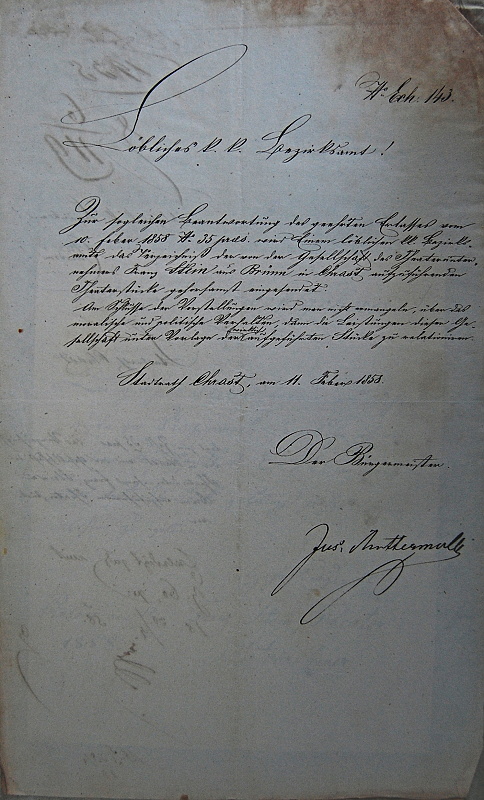 No Exh: 143.
Löbliches k. k. Bezirksamt!
Zur sogleichen Beantwortung des geehrten Erlasses vom
10. Feber 1858 No 35 präs. wird Einem löblichen kk. Bezirks-
amte das Verzeichniß der von der Gesellschaft des Theaterunter-
nehmers Franz aus Brünn in Chrast aufzuführenden
Theaterstücke gehorsamst eingesendet.
Am Schlusse der Vorstellungen wird man nicht ermangeln, über das
moralische und politische Verhalten, dann die Leistungen dieser Ge-
sellschaft unter Vorlage der aufgeführten Stücke zu relationiren.
Stadtrath Chrast, am 11. Feber 1858.
Der Bürgermeister.
Jos.